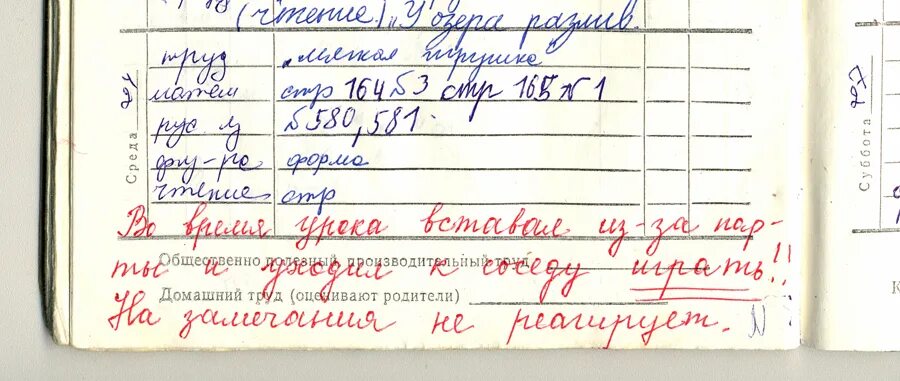 (чтение) „У озера разлив
Среда
труд „мягкая игрушка"
матем стр 164 №3 стр 165 № 1
рус. яз №580, 581.
физ-ра форма
чтение стр
Во время урока вставал из-за пар-
Общественно полезный, производительный труд
ты и уходил к соседу играть!!
Домашний труд (оценивают родители)
На замечания не реагирует.
Суббота